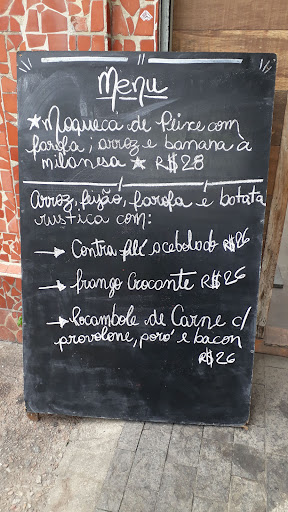 Menu
★ Moqueca de Peixe com
farofa, arroz e banana à
milanesa ★ R$28
Arroz, feijão, farofa e batata
rústica com:
→ Contra filé acebolado R$26
→ frango Crocante R$26
→ Rocambole de Carne c/
provolone, poró e bacon
R$26